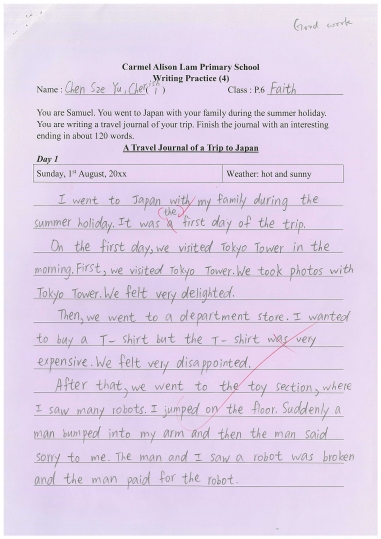 Good work
Carmel Alison Lam Primary School
Writing Practice (4)
Name : Chen Sze Yu, Cherish ( 1 ) Class : P.6 Faith
You are Samuel. You went to Japan with your family during the summer holiday.
You are writing a travel journal of your trip. Finish the journal with an interesting
ending in about 120 words.
A Travel Journal of a Trip to Japan
Day 1
Sunday, 1st August, 20xx Weather: hot and sunny
I went to Japan with my family during the
the
summer holiday. It was a first day of the trip.
On the first day, we visited Tokyo Tower in the
morning. First, we visited Tokyo Tower. We took photos with
Tokyo Tower. We felt very delighted.
Then, we went to a department store. I wanted
to buy a T- shirt but the T- shirt was very
expensive. We felt very disappointed.
After that, we went to the toy section, where
I saw many robots. I jumped on the floor. Suddenly a
man bumped into my arm and then the man said
sorry to me. The man and I saw a robot was broken
and the man paid for the robot.